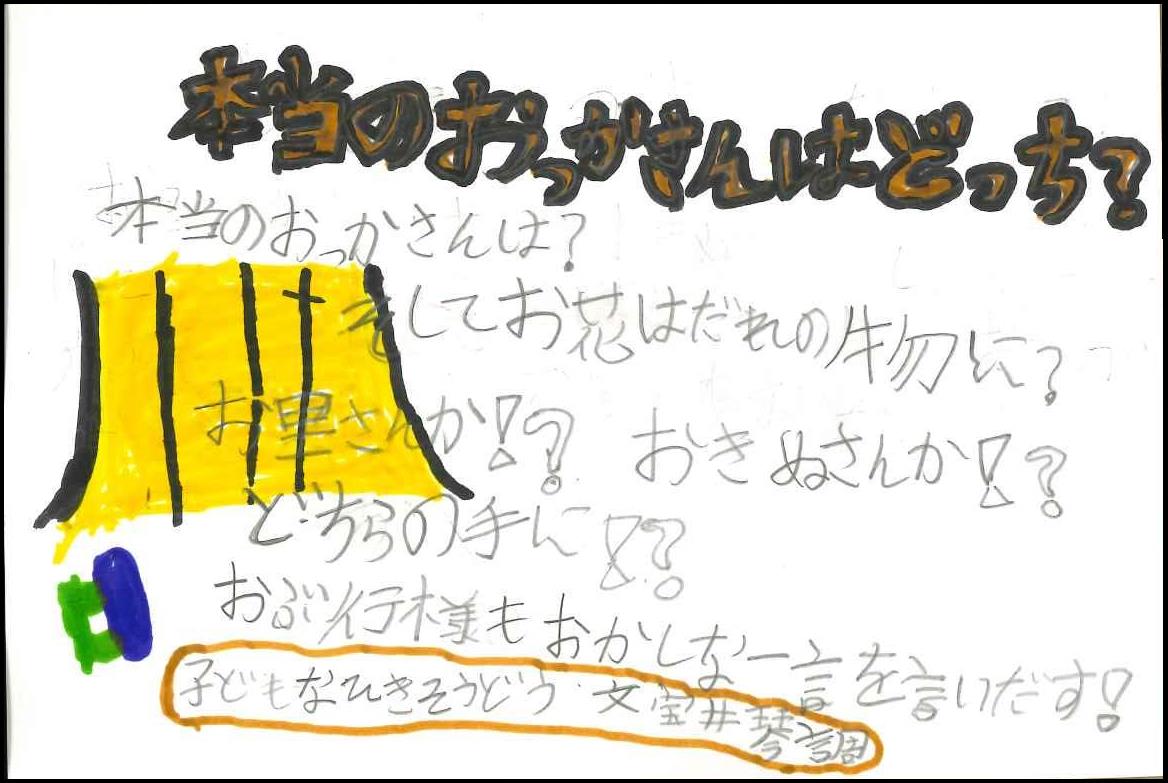 本当のおっかさんはどっち?
本当のおっかさんは?
そしてお花はだれの物に?
お里さんか!? おきぬさんか!?
どちらの手に!?
おぶ行様もおかしな一言を言いだす!
子どもなひきそうどう 文 宝井琴調